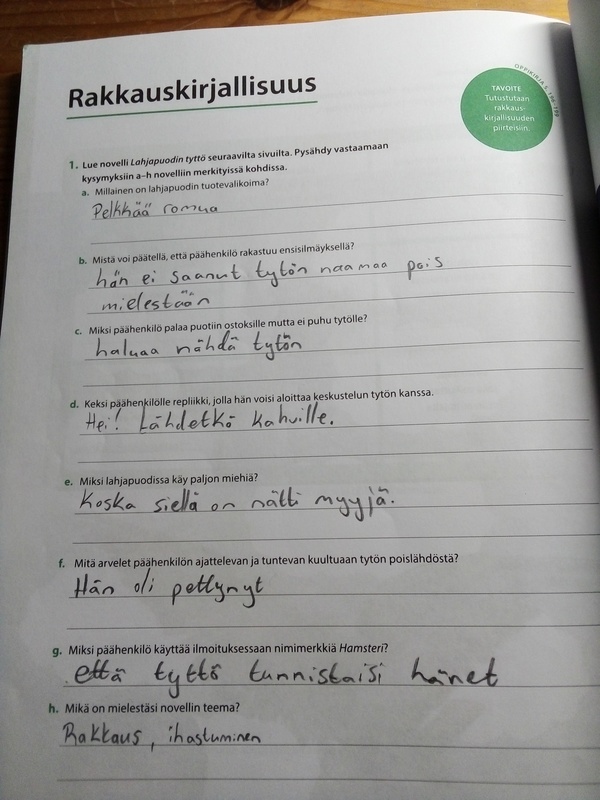 Rakkauskirjallisuus
OPPIKIRJA S. 198–199
TAVOITE
Tutustutaan
rakkaus-
kirjallisuuden
piirteisiin.
1. Lue novelli Lahjapuodin tyttö seuraavilta sivuilta. Pysähdy vastaamaan
kysymyksiin a–h novelliin merkityissä kohdissa.
a. Millainen on lahjapuodin tuotevalikoima?
Pelkkää romua
b. Mistä voi päätellä, että päähenkilö rakastuu ensisilmäyksellä?
hän ei saanut tytön naamaa pois
mielestään
c. Miksi päähenkilö palaa puotiin ostoksille mutta ei puhu tytölle?
haluaa nähdä tytön
d. Keksi päähenkilölle repliikki, jolla hän voisi aloittaa keskustelun tytön kanssa.
Hei! Lähdetkö kahville.
e. Miksi lahjapuodissa käy paljon miehiä?
Koska siellä on nätti myyjä.
f. Mitä arvelet päähenkilön ajattelevan ja tuntevan kuultuaan tytön poislähdöstä?
Hän oli pettynyt
g. Miksi päähenkilö käyttää ilmoituksessaan nimimerkkiä Hamsteri?
että tyttö tunnistaisi hänet
h. Mikä on mielestäsi novellin teema?
Rakkaus, ihastuminen